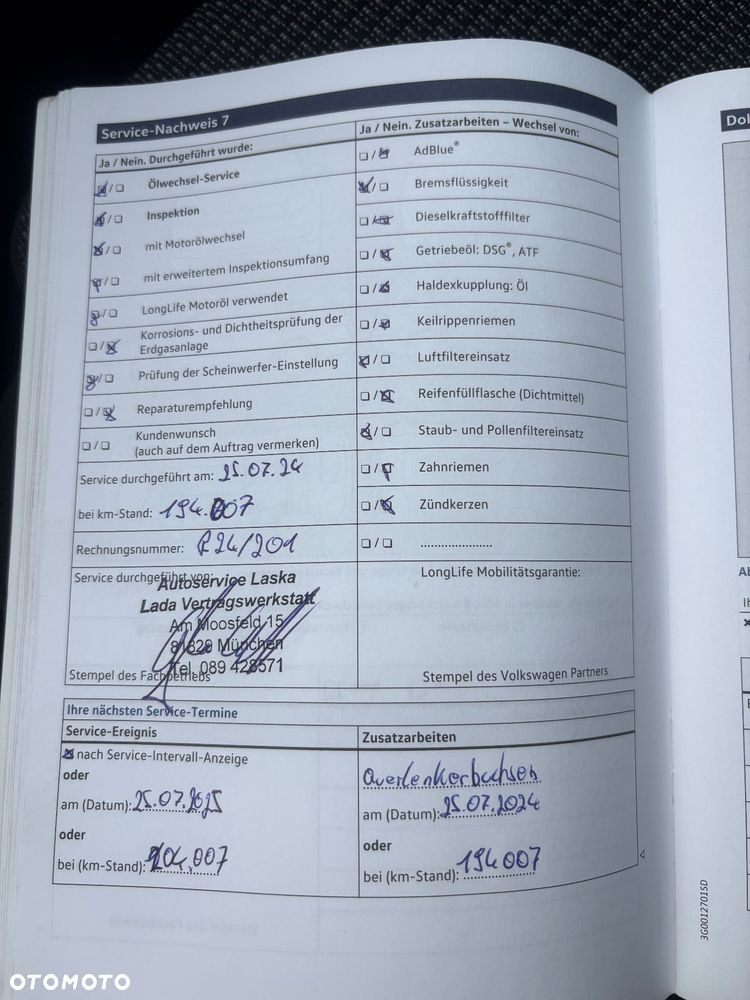 Service-Nachweis 7
Ja / Nein. Durchgeführt wurde:
Ölwechsel-Service
Inspektion
mit Motorölwechsel
mit erweitertem Inspektionsumfang
LongLife Motoröl verwendet
Korrosions- und Dichtheitsprüfung der
Erdgasanlage
Prüfung der Scheinwerfer-Einstellung
Reparaturempfehlung
Kundenwunsch
(auch auf dem Auftrag vermerken)
Service durchgeführt am: 25.07.24
bei km-Stand: 194.007
Rechnungsnummer: R24/201
Service durchgeführt von:
Autoservice Laska
Lada Vertragswerkstatt
Am Moosfeld 15
81829 München
Tel. 089 428571
Stempel des Fachbetriebs
Ja / Nein. Zusatzarbeiten – Wechsel von:
AdBlue®
Bremsflüssigkeit
Dieselkraftstofffilter
Getriebeöl: DSG®, ATF
Haldexkupplung: Öl
Keilrippenriemen
Luftfiltereinsatz
Reifenfüllflasche (Dichtmittel)
Staub- und Pollenfiltereinsatz
Zahnriemen
Zündkerzen
....................
LongLife Mobilitätsgarantie:
Stempel des Volkswagen Partners
Ihre nächsten Service-Termine
Service-Ereignis
nach Service-Intervall-Anzeige
oder
am (Datum): 25.07.2025
oder
bei (km-Stand): 204.007
Zusatzarbeiten
Querlenkerbuchsen
am (Datum): 25.07.2024
oder
bei (km-Stand): 194007
3G0012701SD
OTOMOTO